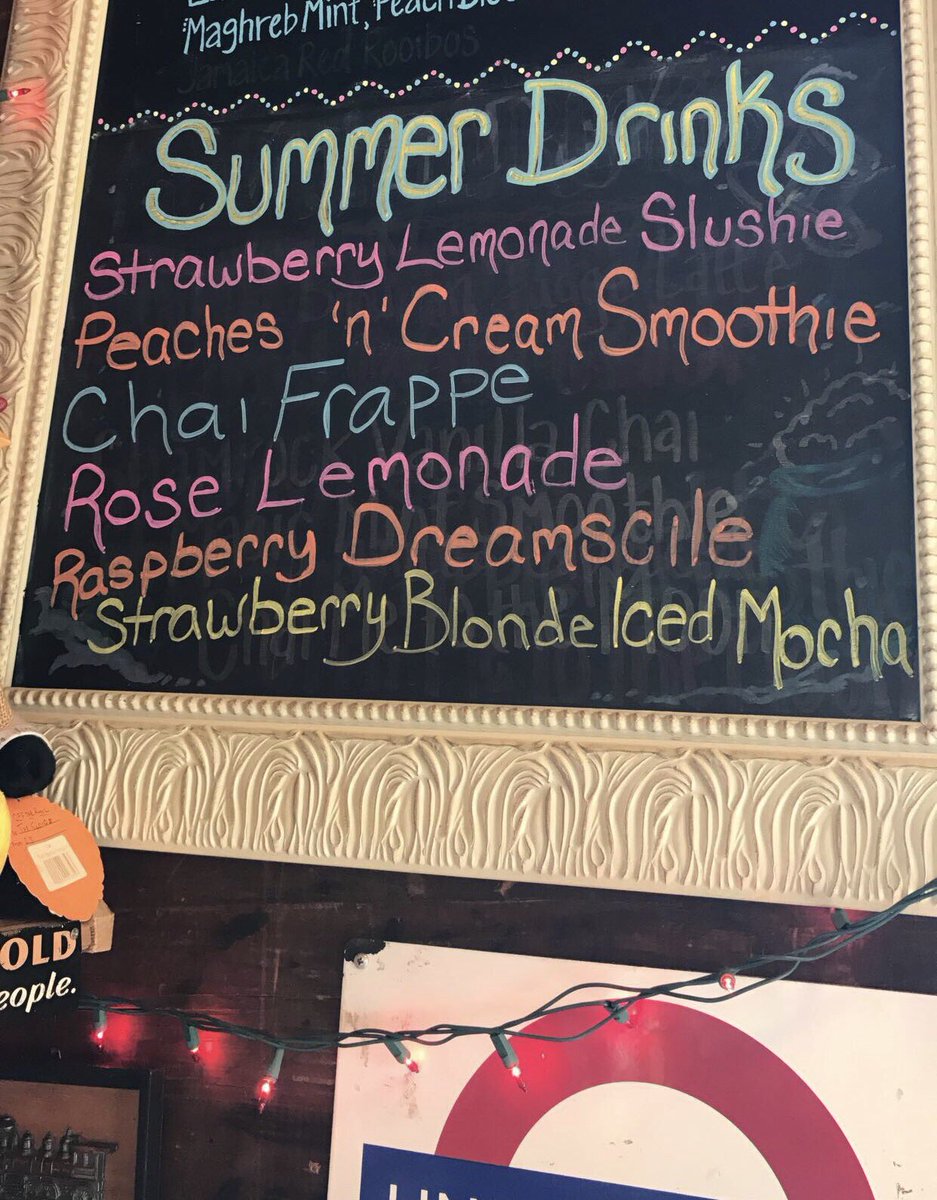 Maghreb Mint, Peach
Jamaica Red Rooibos
Summer Drinks
Strawberry Lemonade Slushie
Peaches 'n' Cream Smoothie
Chai Frappe
Rose Lemonade
Raspberry Dreamscile
Strawberry Blonde Iced Mocha
OLD
eople.
UN